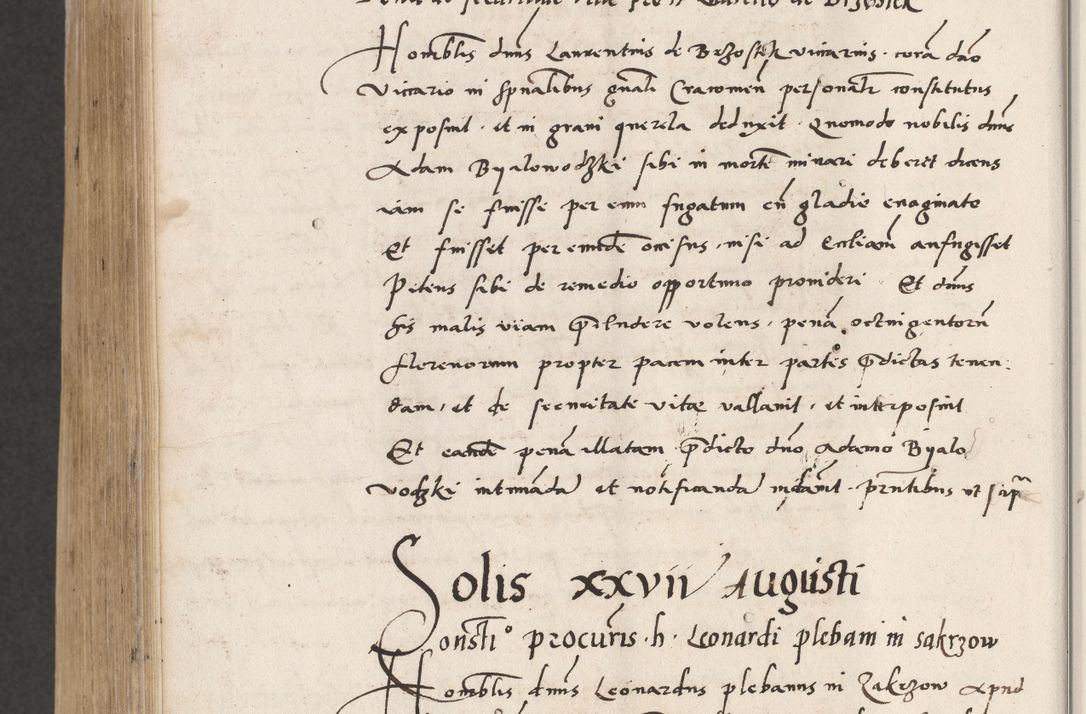 Honorablis dnus Laurentius de Brzostek vicarius corā dno
Vicario in spualibus gnali Cracovien personalr constitutus
exposuit et in gravi querela deduxit Quomodo nobilis dnus
Adam Byalowodzki sibi in mortē minari deberet dicens
iam se fuisse per eum fugatum cū gladio evaginato
Et fuisset per eundē occisus nisi ad Eccliam aufugisset
Petens sibi de remedio opportuno provideri Et dnus
his malis viam p̄cludere volens penā octuigentorū
florenorum propter pacem inter partes p̄dictas tenen
dam et de securitate vitæ vallavit et interposuit
Et eandē penā illatam p̄dicto dno Adamo Byalo
vodzki intimādā et notificandā mādavit prntibus ut supra
Solis xxvii Augusti
Consti° procuris h Leonardi plebani in sakrzow
Honorablis dnus Leonardus plebanus in Zakrzow apud